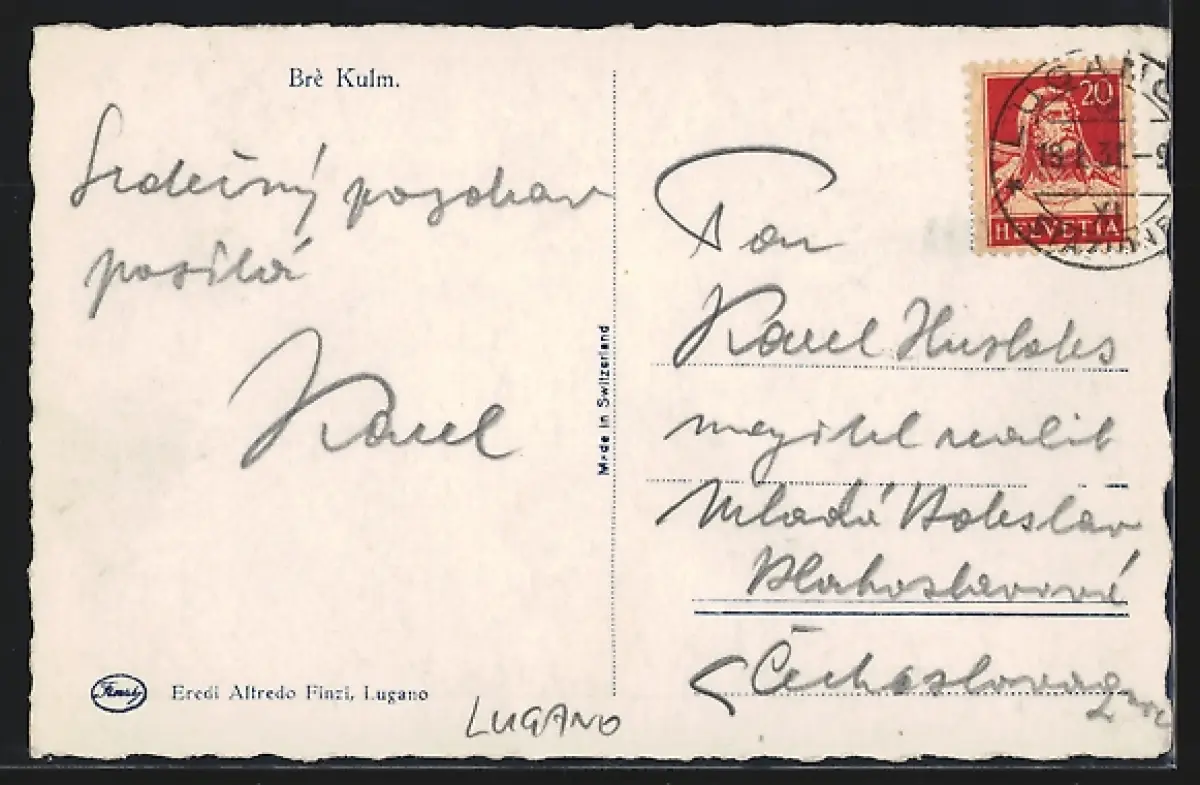 Brè Kulm.
Srdečný pozdrav
posílá
Karel
Made in Switzerland
Finzi
Eredi Alfredo Finzi, Lugano
LUGANO
20
HELVETIA
LUGANO
Pan
Karel
majitel realit
Mladá Boleslav
Blahoslavová
Čechoslovag